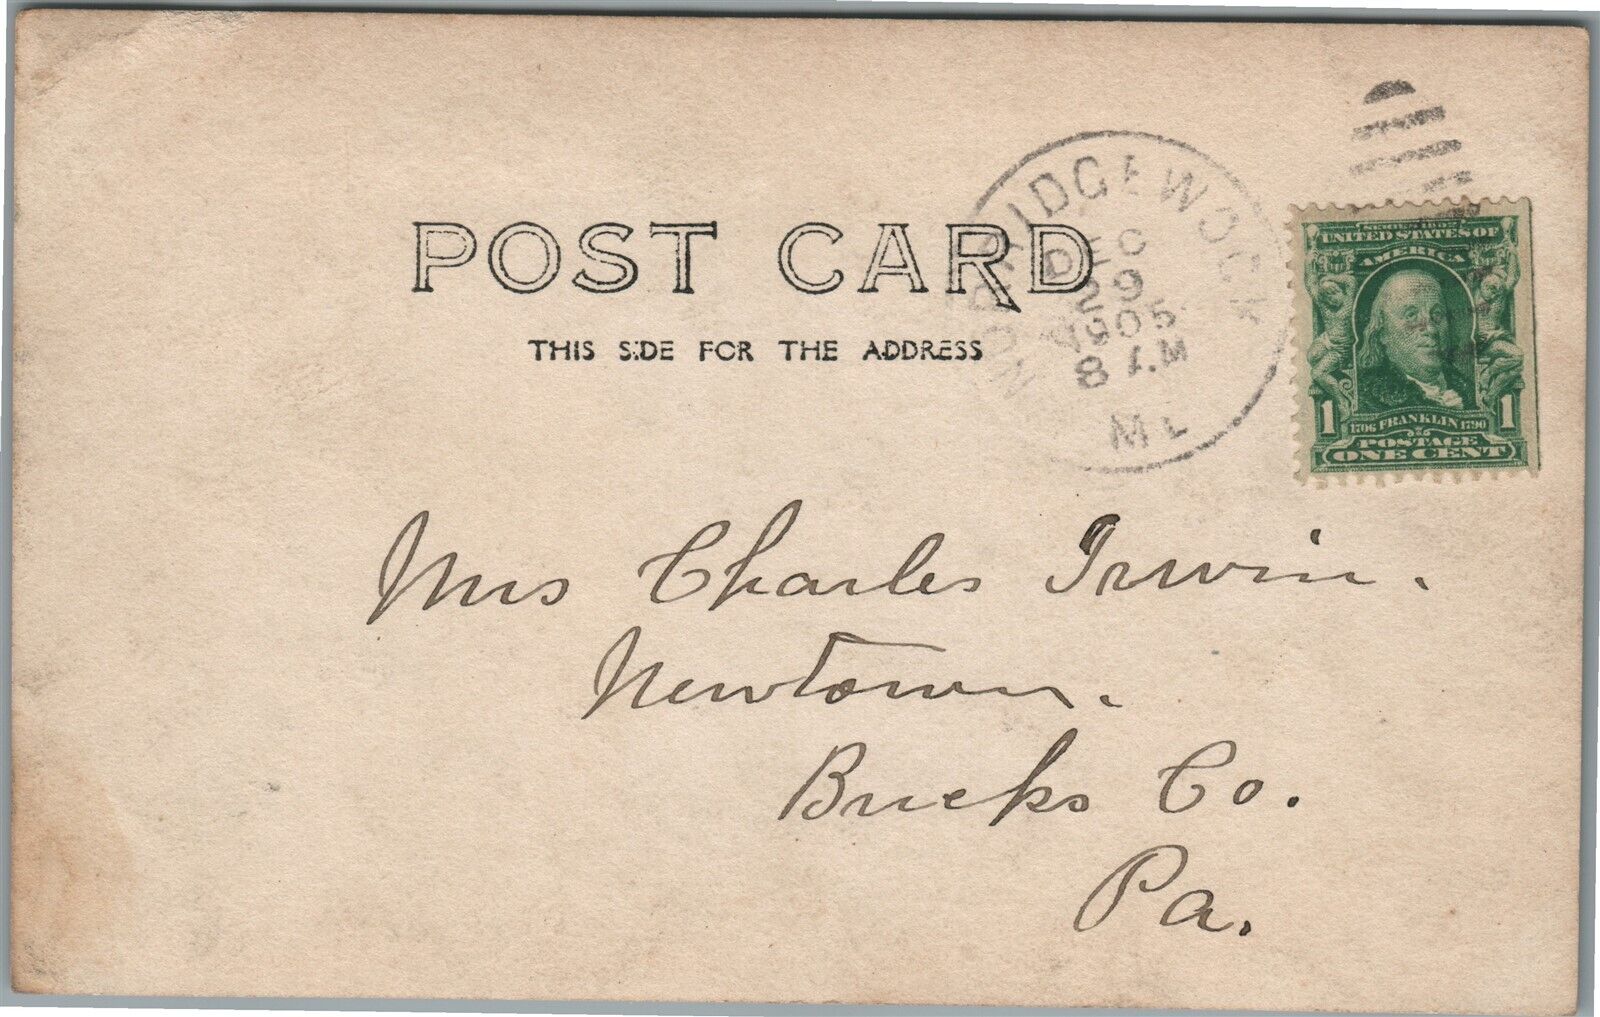 POST CARD
THIS SIDE FOR THE ADDRESS
NORRIDGEWOCK
DEC
29
1905
8 A.M
ME
SERIES 1902
UNITED STATES OF
AMERICA
1706 FRANKLIN 1790
1 1
POSTAGE
ONE CENT
Mrs Charles Irwin.
Newtown.
Bucks Co.
Pa.